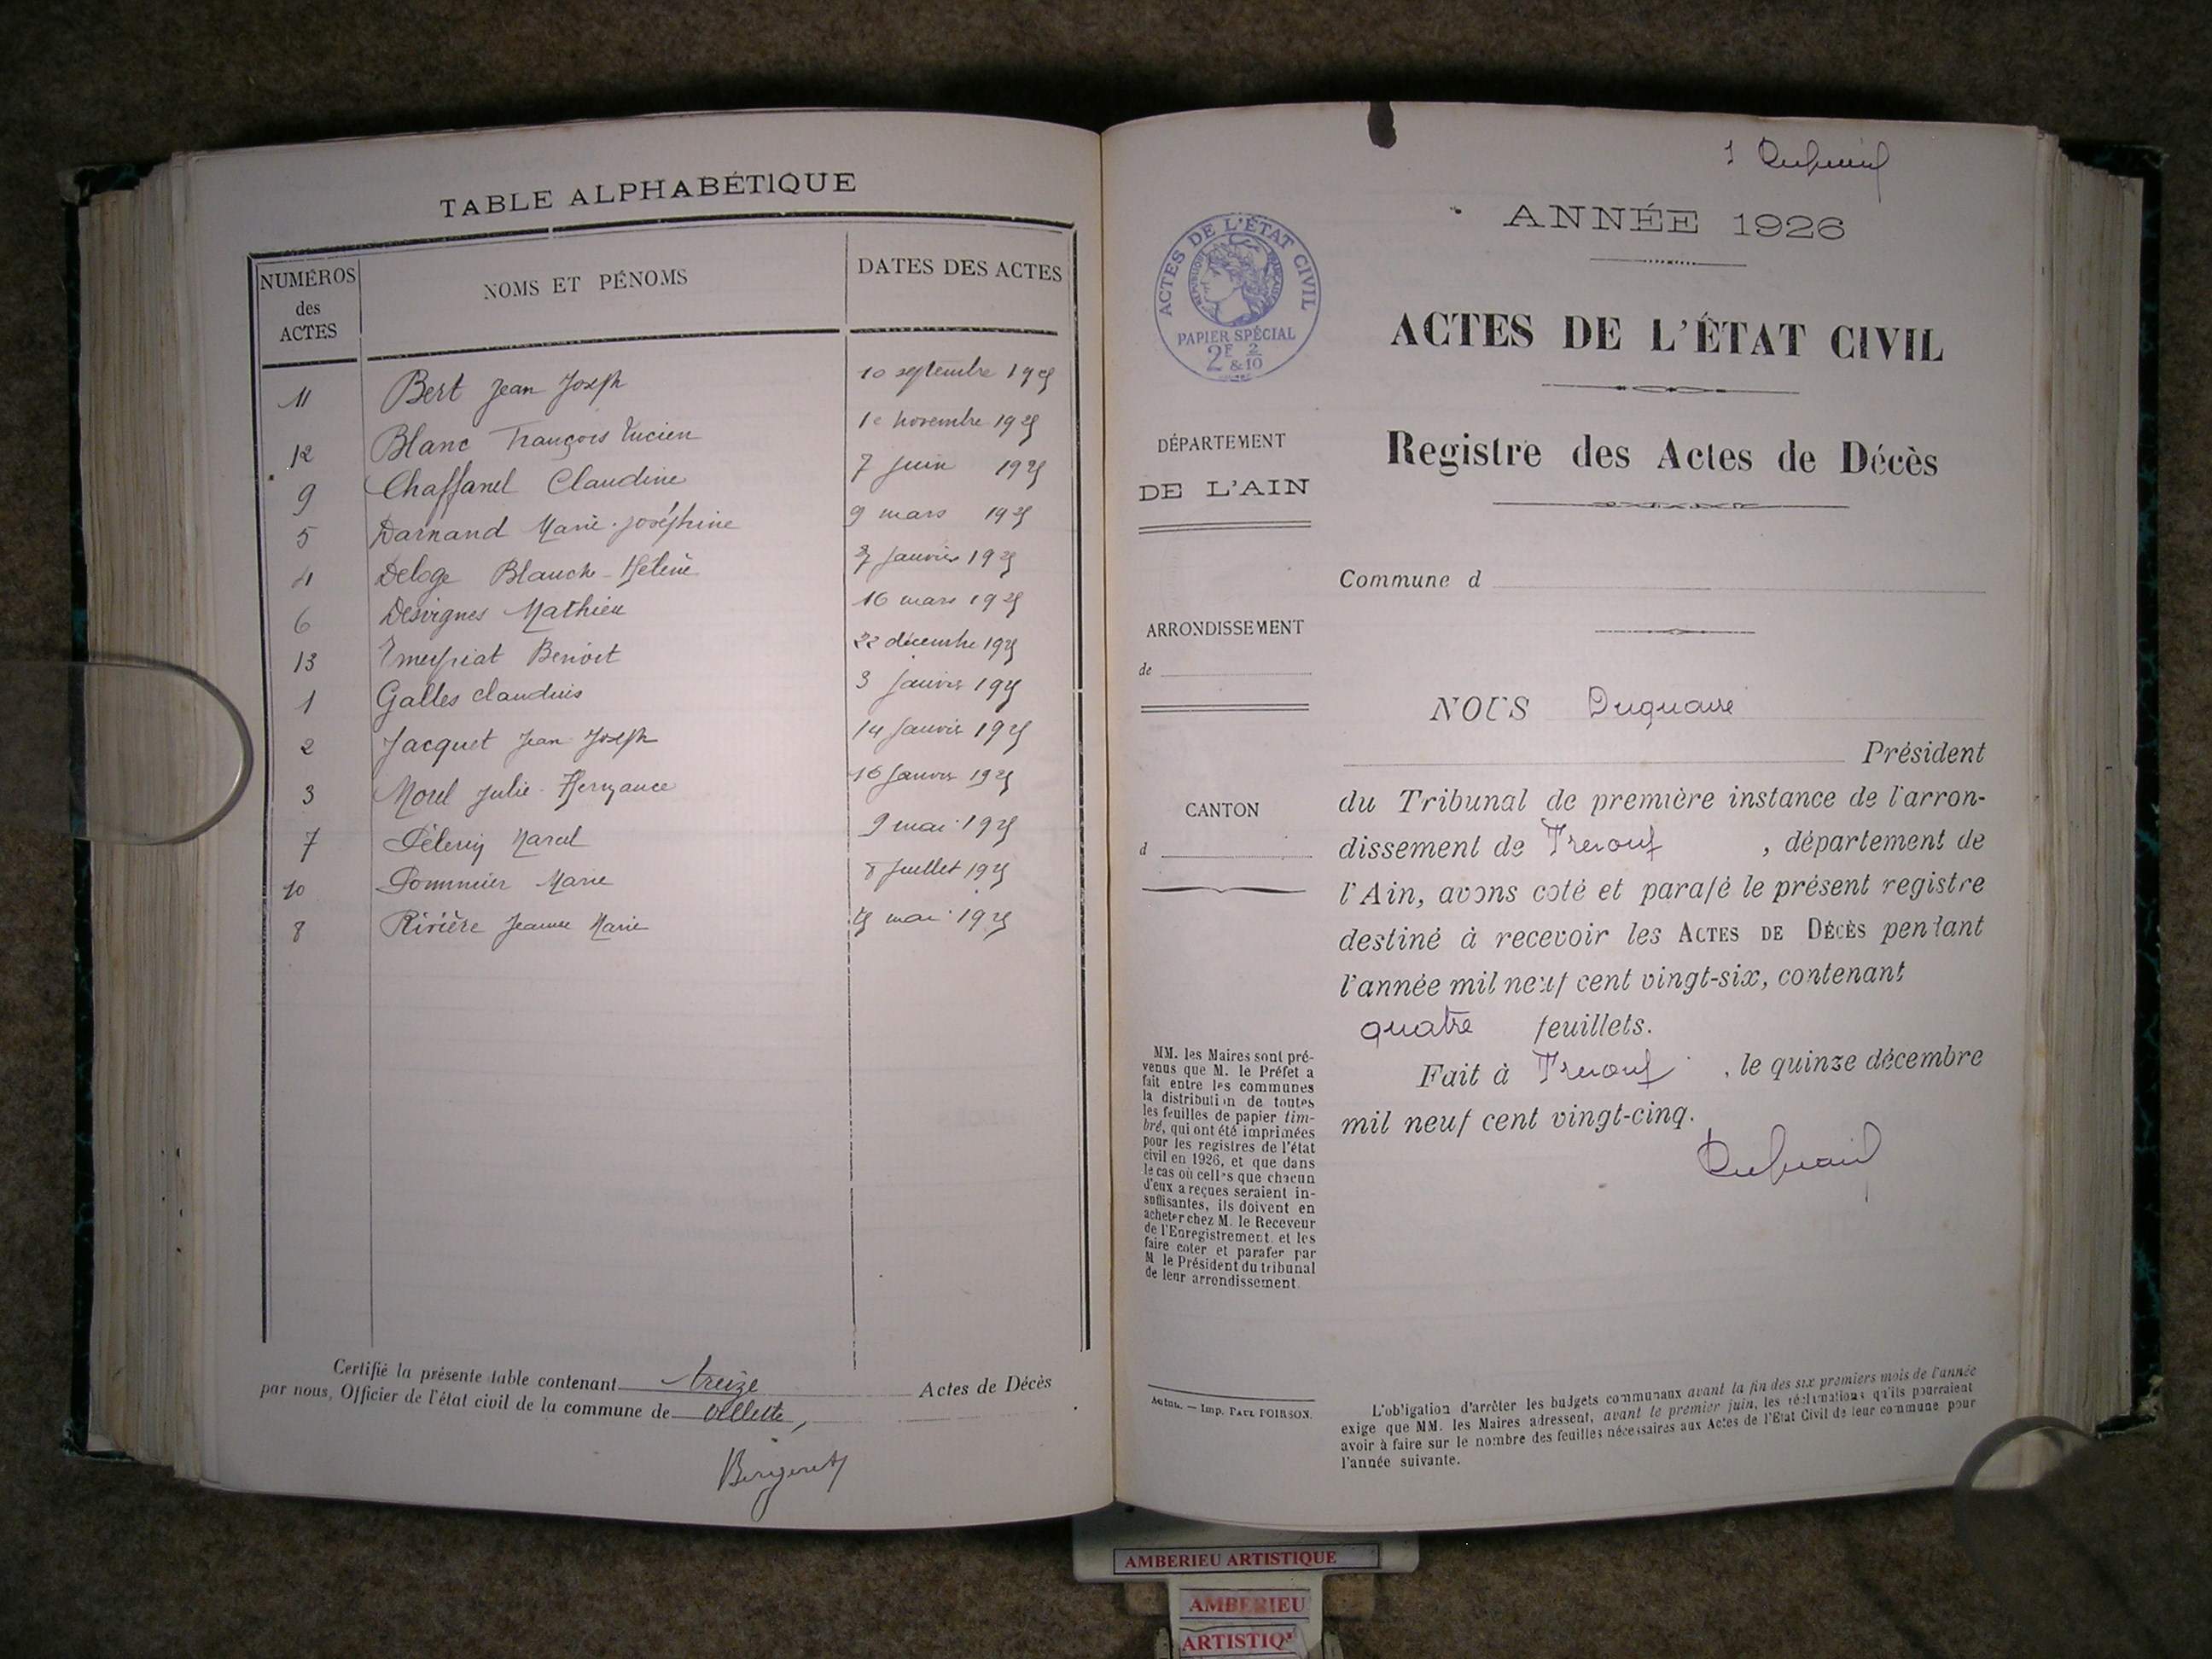 TABLE ALPHABÉTIQUE
NUMÉROS des ACTES
NOMS ET PÉNOMS
DATES DES ACTES
11 Bert Jean Joseph 10 septembre 1925
12 Blanc François Lucien novembre 1925
9 Chaffanel Claudine 7 Juin 1925
5 Darnand Marie-Joséphine 9 mars 1925
4 Deloge Blanche-Hélène Janvier 1925
6 Desvignes Mathieu 16 mars 1925
13 Benoit 22 décembre 1925
1 Galles Claudius 3 Janvier 1925
2 Jacquet Jean Joseph 14 Janvier 1925
3 Morel Julie Hermance 16 Janvier 1925
7 Pélerin Marcel 9 mai 1925
10 Pommier Marie 8 Juillet 1925
8 Rivière Jeanne Marie mai 1925
Certifié la présente table contenant treize Actes de Décès
par nous, Officier de l'état civil de la commune de
1
ANNÉE 1926
ACTES DE L'ÉTAT CIVIL
RÉPUBLIQUE FRANÇAISE
PAPIER SPÉCIAL
2F 2
&10
ACTES DE L'ÉTAT CIVIL
Registre des Actes de Décès
DÉPARTEMENT
DE L'AIN
Commune d
ARRONDISSEMENT
de
CANTON
d
NOUS Duquaire
Président
du Tribunal de première instance de l'arron-
dissement de Trevoux, département de
l'Ain, avons coté et parafé le présent registre
destiné à recevoir les ACTES DE DÉCÈS pendant
l'année mil neuf cent vingt-six, contenant
quatre feuillets.
Fait à Trevoux, le quinze décembre
mil neuf cent vingt-cinq.
MM. les Maires sont pré-
venus que M. le Préfet a
fait entre les communes
la distribution de toutes
les feuilles de papier tim-
bré, qui ont été imprimées
pour les registres de l'état
civil en 1926, et que dans
le cas où celles que chacun
d'eux a reçues seraient in-
suffisantes, ils doivent en
acheter chez M. le Receveur
de l'Enregistrement et les
faire coter et parafer par
M le Président du tribunal
de leur arrondissement.
Autun. — Imp. PAUL POIRSON.
L'obligation d'arrêter les budgets communaux avant la fin des six premiers mois de l'année
exige que MM. les Maires adressent, avant le premier juin, les réclamations qu'ils pourraient
avoir à faire sur le nombre des feuilles nécessaires aux Actes de l'Etat Civil de leur commune pour
l'année suivante.
AMBERIEU ARTISTIQUE
AMBERIEU
ARTISTIQ